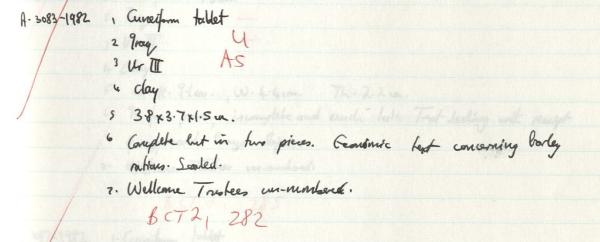 A. 3083-1982 1 Cuneiform tablet
2 Iraq U
3 Ur III AS
4 clay
5 3.8 x 3.7 x 1.5 cm.
6 Complete but in two pieces. Economic text concerning barley
rations. Sealed.
7. Wellcome Trustees un-numbered.
BCT2, 282